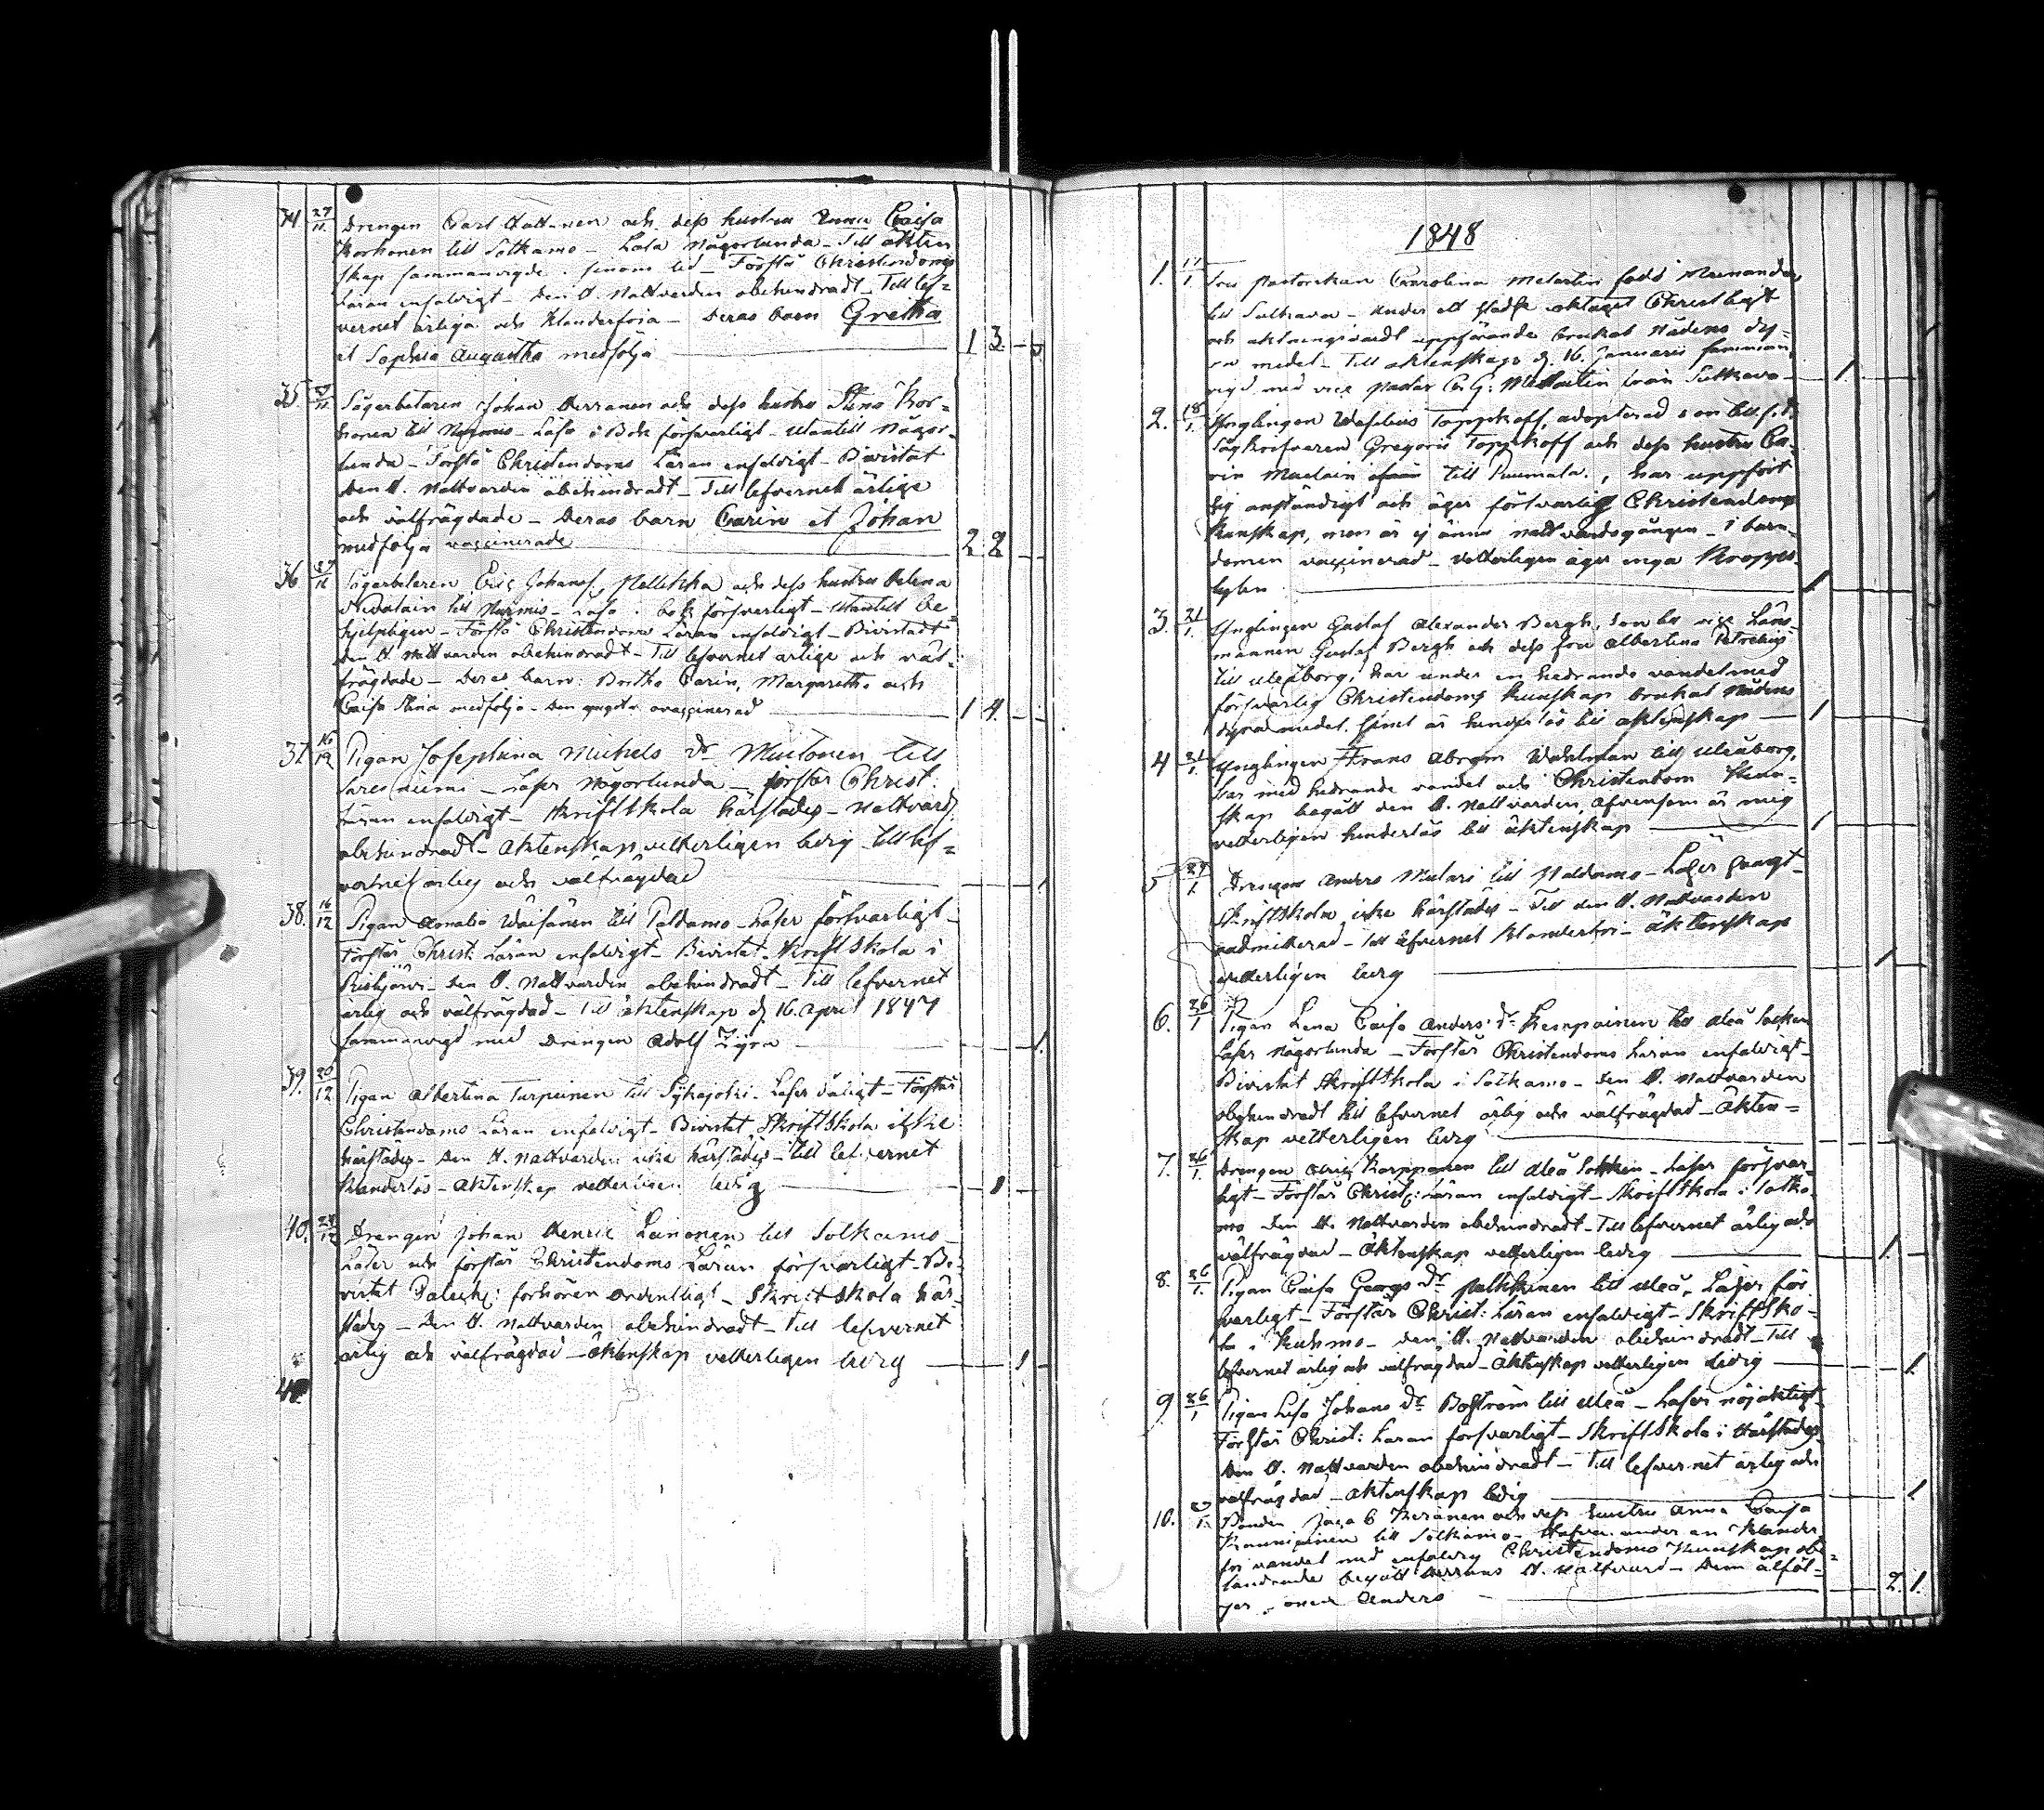 34 27/11 Drengen Carl och dess hustru Anna Caisa
Korhonen till Sotkamo – Läsa någorlunda – Till äkten
skap sammanvigde – Förstå Christendoms
Läran enfaldigt – Den H. Nattvarden obehindradt – Till lef=
vernet ärliga och klanderfria – Deras barn Gretha
et Sophia Augustha medfölja 1 3 –
35. /11 Johan och dess hustru Stina Kor=
honen till Nurmis – Läsa i Bok försvarligt – Utantill någor=
lunda – Förstå Christendoms Läran enfaldigt – Bivistat
Den H. Nattvarden obehindradt – Till lefvernet ärlige
och välfrägdade – Deras barn Carin et Johan
medfölja vaccinerade 2 2 –
36 /11 Eric Johans och dess hustru Helena
till Nurmis – Läsa i bok försvarligt – Utantill be
hjelpligen – Förstå Christendoms Läran enfaldigt – Bivistadt
den H. Nattvarden obehindradt – Till lefvernet ärlige och väl=
frägdade – Deras barn: Britha Carin, Margaretha och
Caisa Stina medfölja – Den yngsta ovaccinerad 1 4. –
37 16/12 Pigan Josephina Michels dr Muitonen till
– Läser Någorlunda – förstår Christ:
Läran enfaldigt – Skriftskola härstädes – Nattvard:
obehindradt – Äktenskap vetterligen ledig – till lef=
vernet ärlig och välfrägdad 1
38. 16/12 Pigan Amalia Väisänen till Paldamo – Läser försvarligt –
Förstår Christ: Läran enfaldigt – Bivistat Skriftskola i
– Den H. Nattvarden obehindradt – Till lefvernet
ärlig och välfrägdad – Till äktenskap d. 16. April 1847
sammanvigd med Drengen Adolf 1
39. 20/12 Pigan Albertina Turpeinen till – Läser dåligt – Förstår
Christendoms Läran enfaldigt – Bivistat Skriftskola icke
härstädes – Den H. Nattvarden icke härstädes – Till lefvernet
klanderlös – Äktenskap vetterligen ledig 1 –
40. /12 Drengen Johan Henric Leinonen till Sotkamo –
Läser och förstår Christendoms Läran försvarligt – Bi=
vistat förhören ordentligt – Skriftskola här=
städes – Den H. Nattvarden obehindradt – Till lefvernet
ärlig och välfrägdad – Äktenskap vetterligen ledig 1 –
1848
1. 11/1 Fru Pastorskan Carolina Melartin född Nunander
till Sulkava – under ett städse iaktaget Christligt
och aktningsvärdt uppförande brukat Nådens dy=
ra medel – Till äktenskap d. 16. Januarii samman=
vigd med vice Pastor C. G. Melartin från Sulkava 1.
2. 18/1 Ynglingen Toppikoff, adopterad son till f.d.
Gregorii Toppikoff och dess hustru Ca=
rin till Puumala, har uppfört
sig anständigt och äger försvarlig Christendoms
kunskap, men är ej ännu nattvardsgången – i barn=
domen vaccinerad – vetterligen äger inga Kropps=
lyten 1
3. 21/1 Ynglingen Gustaf Alexander Bergh, Son till vice Läns=
mannen Gustaf Bergh och dess fru Albertina
till Uleåborg, har under en hedrande vandel med
försvarlig Christendoms kunskap brukat Nådens
dyra medel. Samt är hinderlös till äktenskap 1
4 21/1 Ynglingen Frans Abram Wahlman till Uleåborg,
har med hedrande vandel och Christendoms kun=
skap begått den H. Nattvarden, äfvensom är mig
vetterligen hinderlös till äktenskap 1
5 24/1 Drengen Anders Mulari till Paldamo – Läser
Skriftskola icke härstädes – Till den H. Nattvarden
admitterad – till lefvernet klanderfri – Äktenskap
vetterligen ledig 1
6. 26/1 Pigan Lena Caisa Anders dr Kemppainen till Uleå Socken
Läser någorlunda – Förstår Christendoms Läran enfaldigt –
Bivistat Skriftskola i Sotkamo – Den H. Nattvarden
obehindradt till lefvernet ärlig och välfrägdad – Äkten=
skap vetterligen ledig
7. 26/1 Drengen Karppanen till Uleå Socken – Läser försvar=
ligt – Förstår Christ: Läran enfaldigt – Skriftskola i Sotka=
mo Den H. Nattvarden obehindradt – Till lefvernet ärlig och
välfrägdad – Äktenskap vetterligen ledig 1.
8. 26/1 Pigan Caisa Georgs dr till Uleå, Läser för
svarligt – Förstår Christ: Läran enfaldigt – Skriftsko=
la i Kuhmo – Den H. Nattvarden obehindradt – Till
lefvernet ärlig och välfrägdad – Äktenskap vetterligen ledig 1.
9 26/1 Pigan Lisa Johans dr Boström till Uleå – Läser nöjaktigt –
Förstår Christ: Läran försvarligt – Skriftskola i härstädes
Den H. Nattvarden obehindradt – Till lefvernet ärlig och
välfrägdad – Äktenskap ledig 1.
10. /1 Bonden Keränen och dess hustru Anna Caisa
till Sotkamo – Hafva under en klander
fri vandel med enfaldig Christendoms kunskap obe=
hindrade begått Herrans H. Nattvard – Dem åtföl=
jer sonen Anders 2. 1.